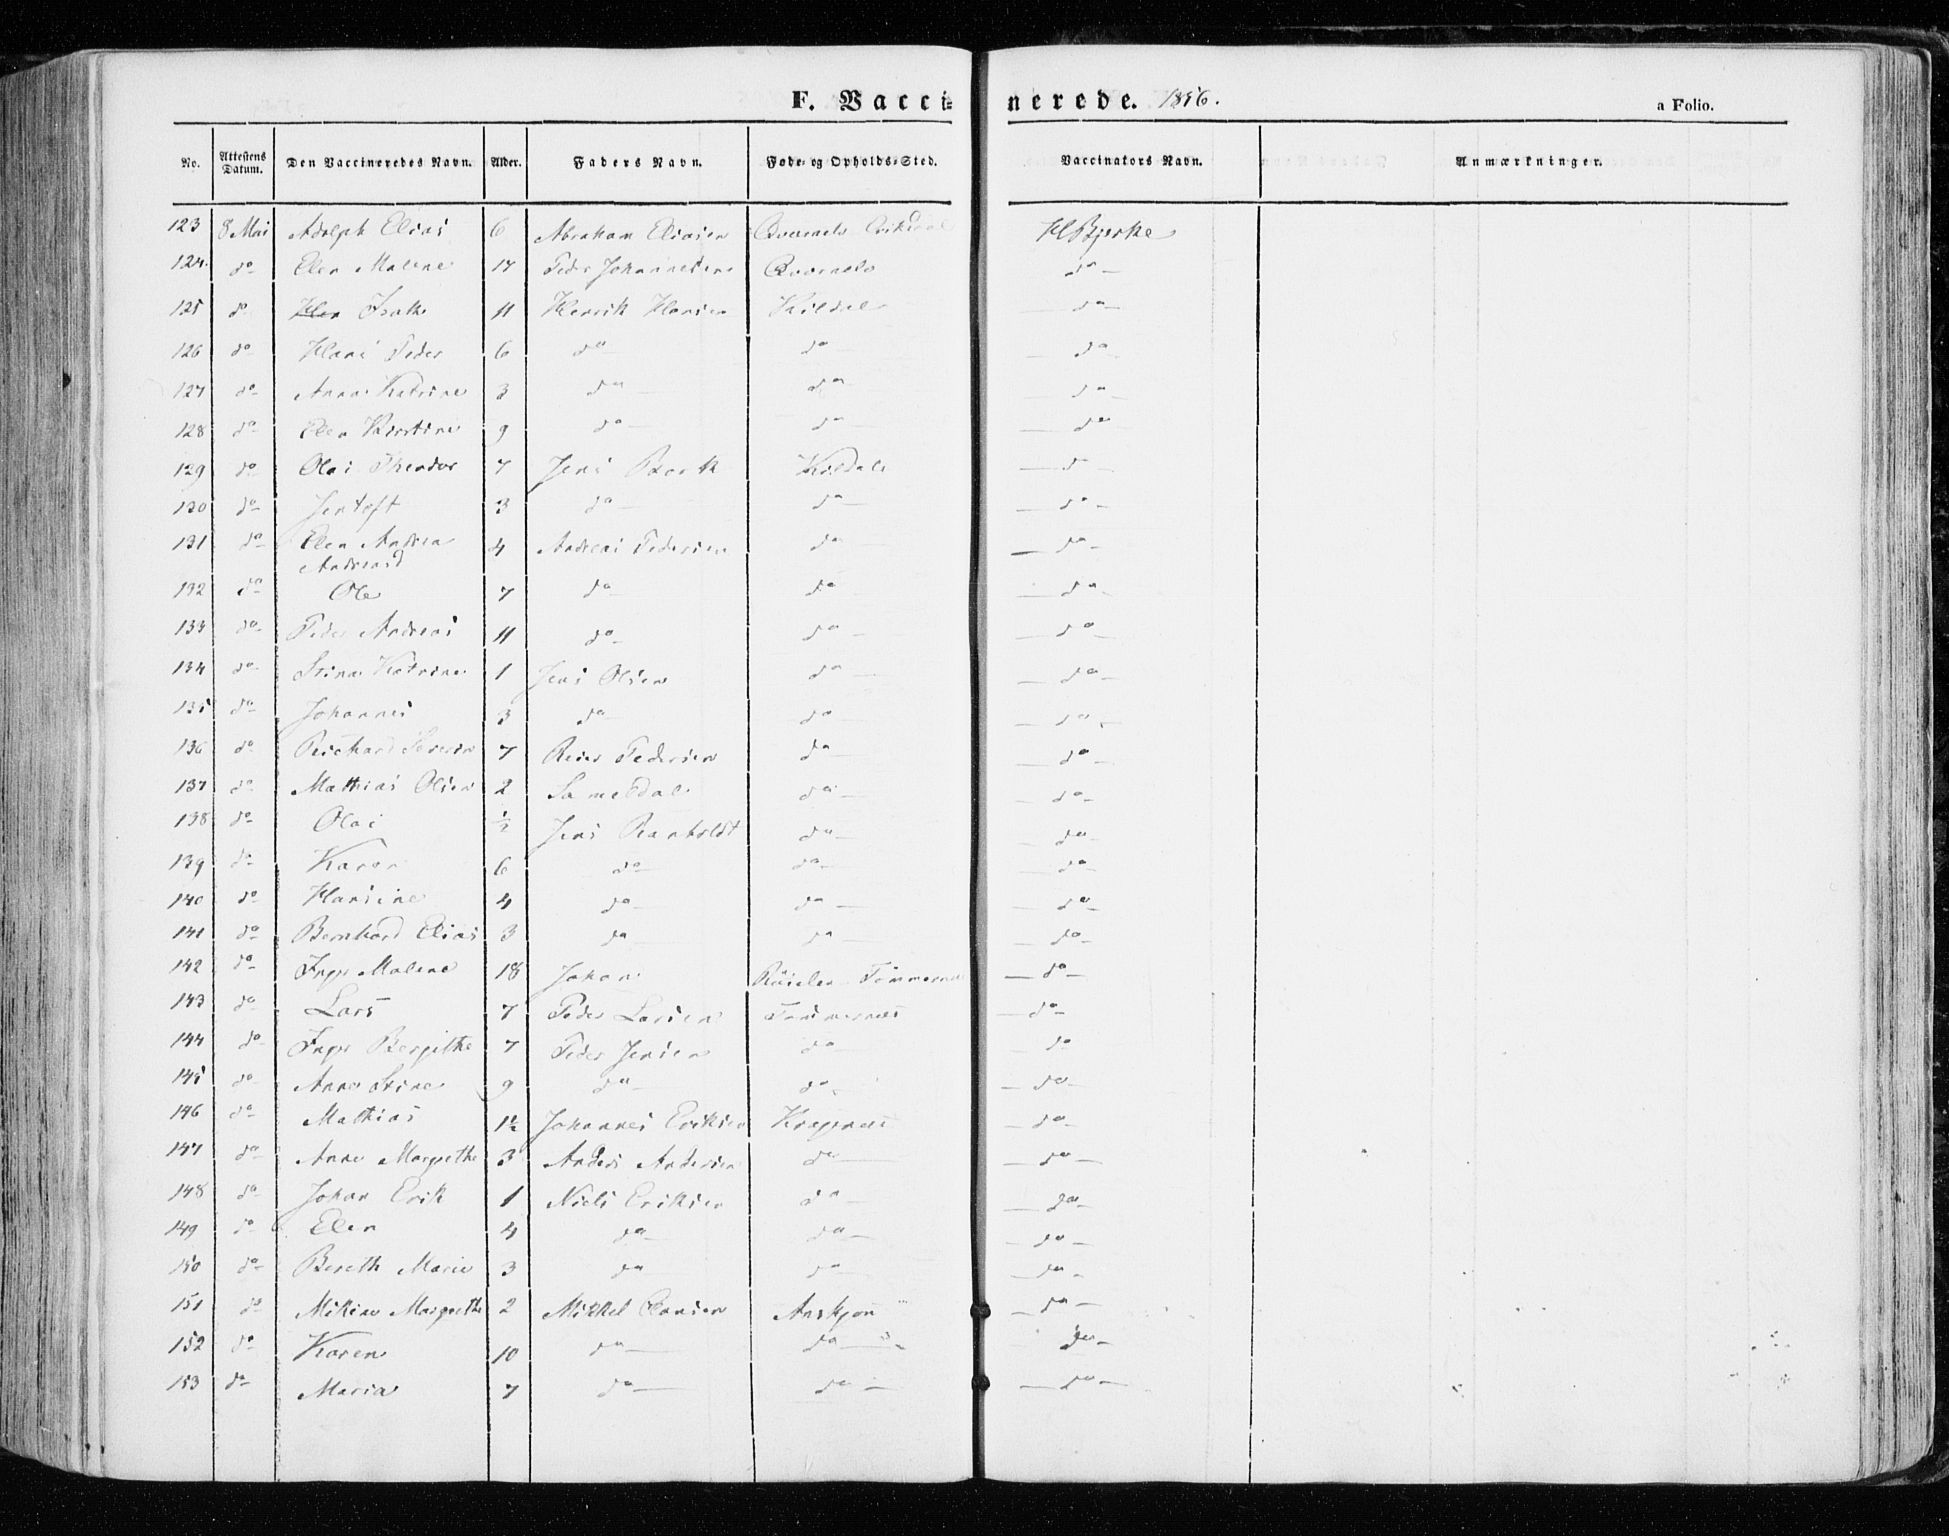 F. Vaccinerede. 1856.
a Folio.
No. Attestens Datum. Den Vaccineredes Navn. Alder. Faders Navn. Føde- og Opholds-Sted. Vaccinators Navn. Anmærkninger.
123 8 Mai Adolph Elias 6 Abraham Eliasen Qværnelv HBjerke
124. do Elen Malene 14 Peder Johannesen Qværnelv do
125 do Isak 11 Henrik Hansen Kildal do
126 do Hans Peder 6 do do do
127 do Anne Katrine 3 do do do
128 do Elen Kirstine 9 do do do
129 do Olai Theodor 7 Jens Bark Kildal do
130 do Jentoft 3 do do do
131 do Elen Andrea 4 Andreas Pedersen do do
Andreasd
132 do Ole 7 do do do
133 do Peder Andreas 11 do do do
134 do Stina Katrine 1 Jens Olsen do do
135 do Johannes 3 do do do
136 do Richard Severin 7 Reier Pedersen do do
137 do Mathias Olsen 2 Sameldal do do
138 do Olai ½ Jens Ranholdt do do
139 do Karen 6 do do do
140 do Hansine 4 do do do
141 do Bernhard Elias 3 do do do
142 do Inger Malene 18 Johan Tømmernes do
143 do Lars 7 Peder Larsen Tømmernes do
144 do Inger Bergithe 7 Peder Jensen do do
145 do Anne Stine 9 do do do
146 do Mathias 1½ Johannes Eriksen Kragenes do
147 do Anne Margrethe 3 Anders Andersen do do
148 do Johan Erik 1 Niels Eriksen do do
149 do Elen 4 do do do
150 do Bereth Marie 3 do do do
151 do Mikine Margrethe 2 Mikkel Clausen Aaskjon do
152 do Karen 10 do do do
153 do Maria 7 do do do